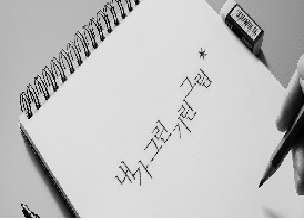 내가 그린 기린 그림 *